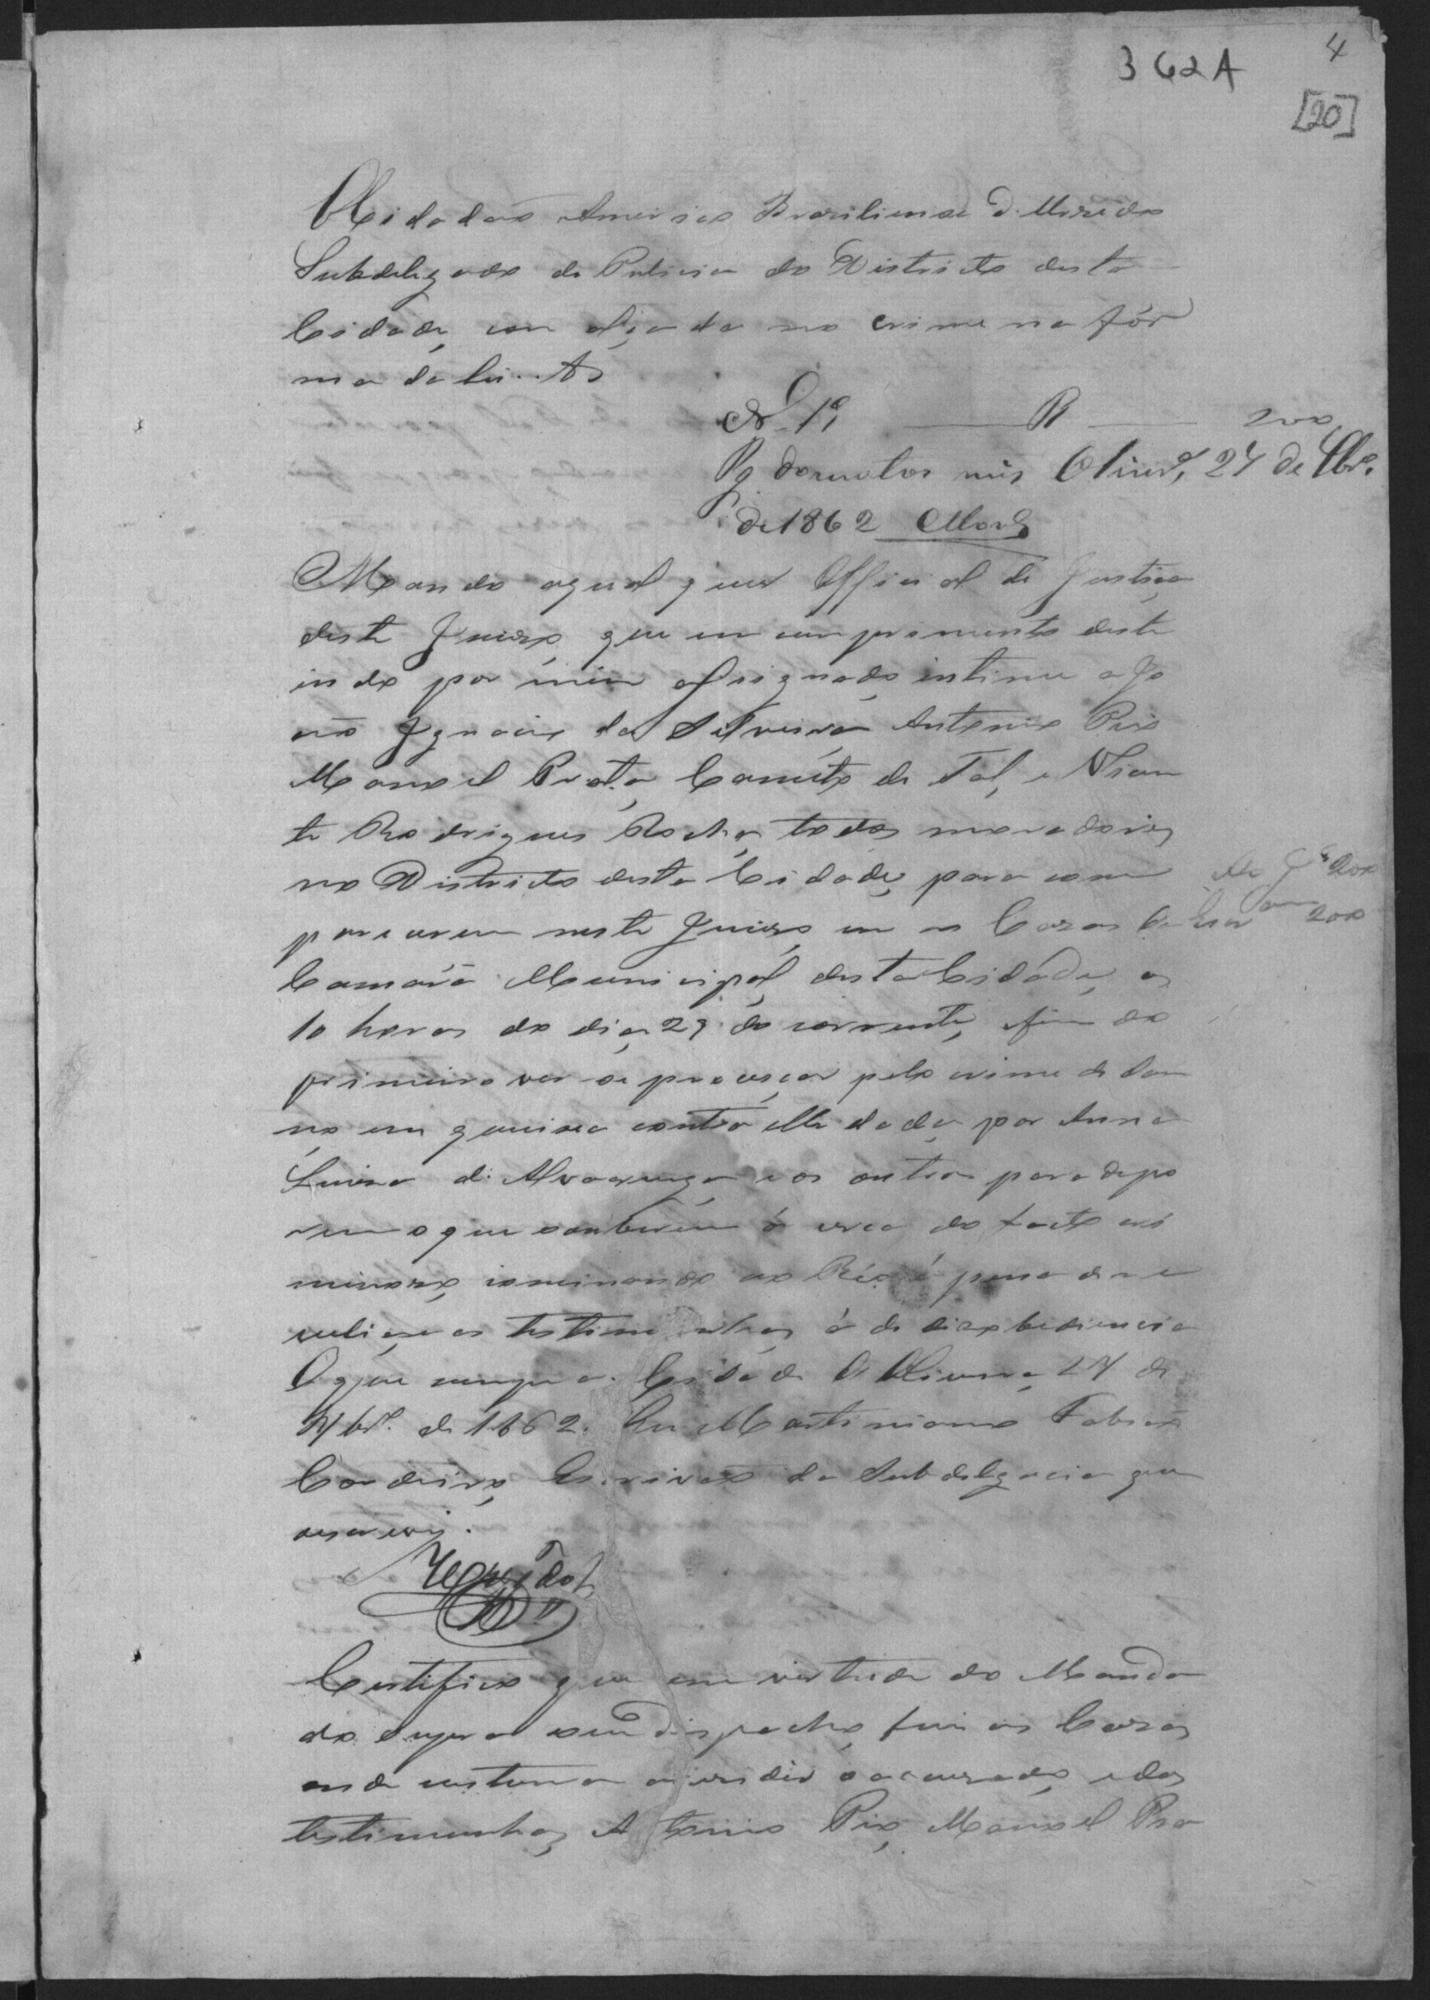 362A
4
[20]
O Cidadão Americo Brasiliense d'
Subdelegado de Policia do Districto desta
Cidade, com alçada no crime na fór
ma da lei. &
N. 19 R 200
Pg duzentos reis Olivrª, 24 de 9brº.
de 1862
Mando aqual quer Official de Justiça
deste Juizo, que em cumprimento deste
indo por mim assignado, intime a Jo
ão Ignacio da Silveira, Antonio Pio
Manoel Prata, Canuto de Tal, e Vicen
te Rodrigues Rocha, todos moradores
no Districto desta Cidade, para com
200
parecerem neste Juizo, em as Casas da
200
Camara Municipal desta Cidade, as
10 horas do dia 29 do corrente, afim do
primeiro ver se processar pelo crime de dam
no em queixa contra elle dada por Anna
Luisa de Alvarenga e os outros para depo
rem o que souberem á cerca do facto cri
minoso, cominando ao Réo á pena de re
velia, e as testimunhas á de disobediencia
O que cumpra. Cidade de Oliveira, 24 de
9brº. de 1862. Eu Martiniano
Cordeiro, Escrivão da Subdelegacia que
escrevi.
Certifico que em virtude do Manda
do supra e seu dispacho, fui as Casas
onde custuma residir o accusado, e das
testimunhas Antonio Pio, Manoel Pra